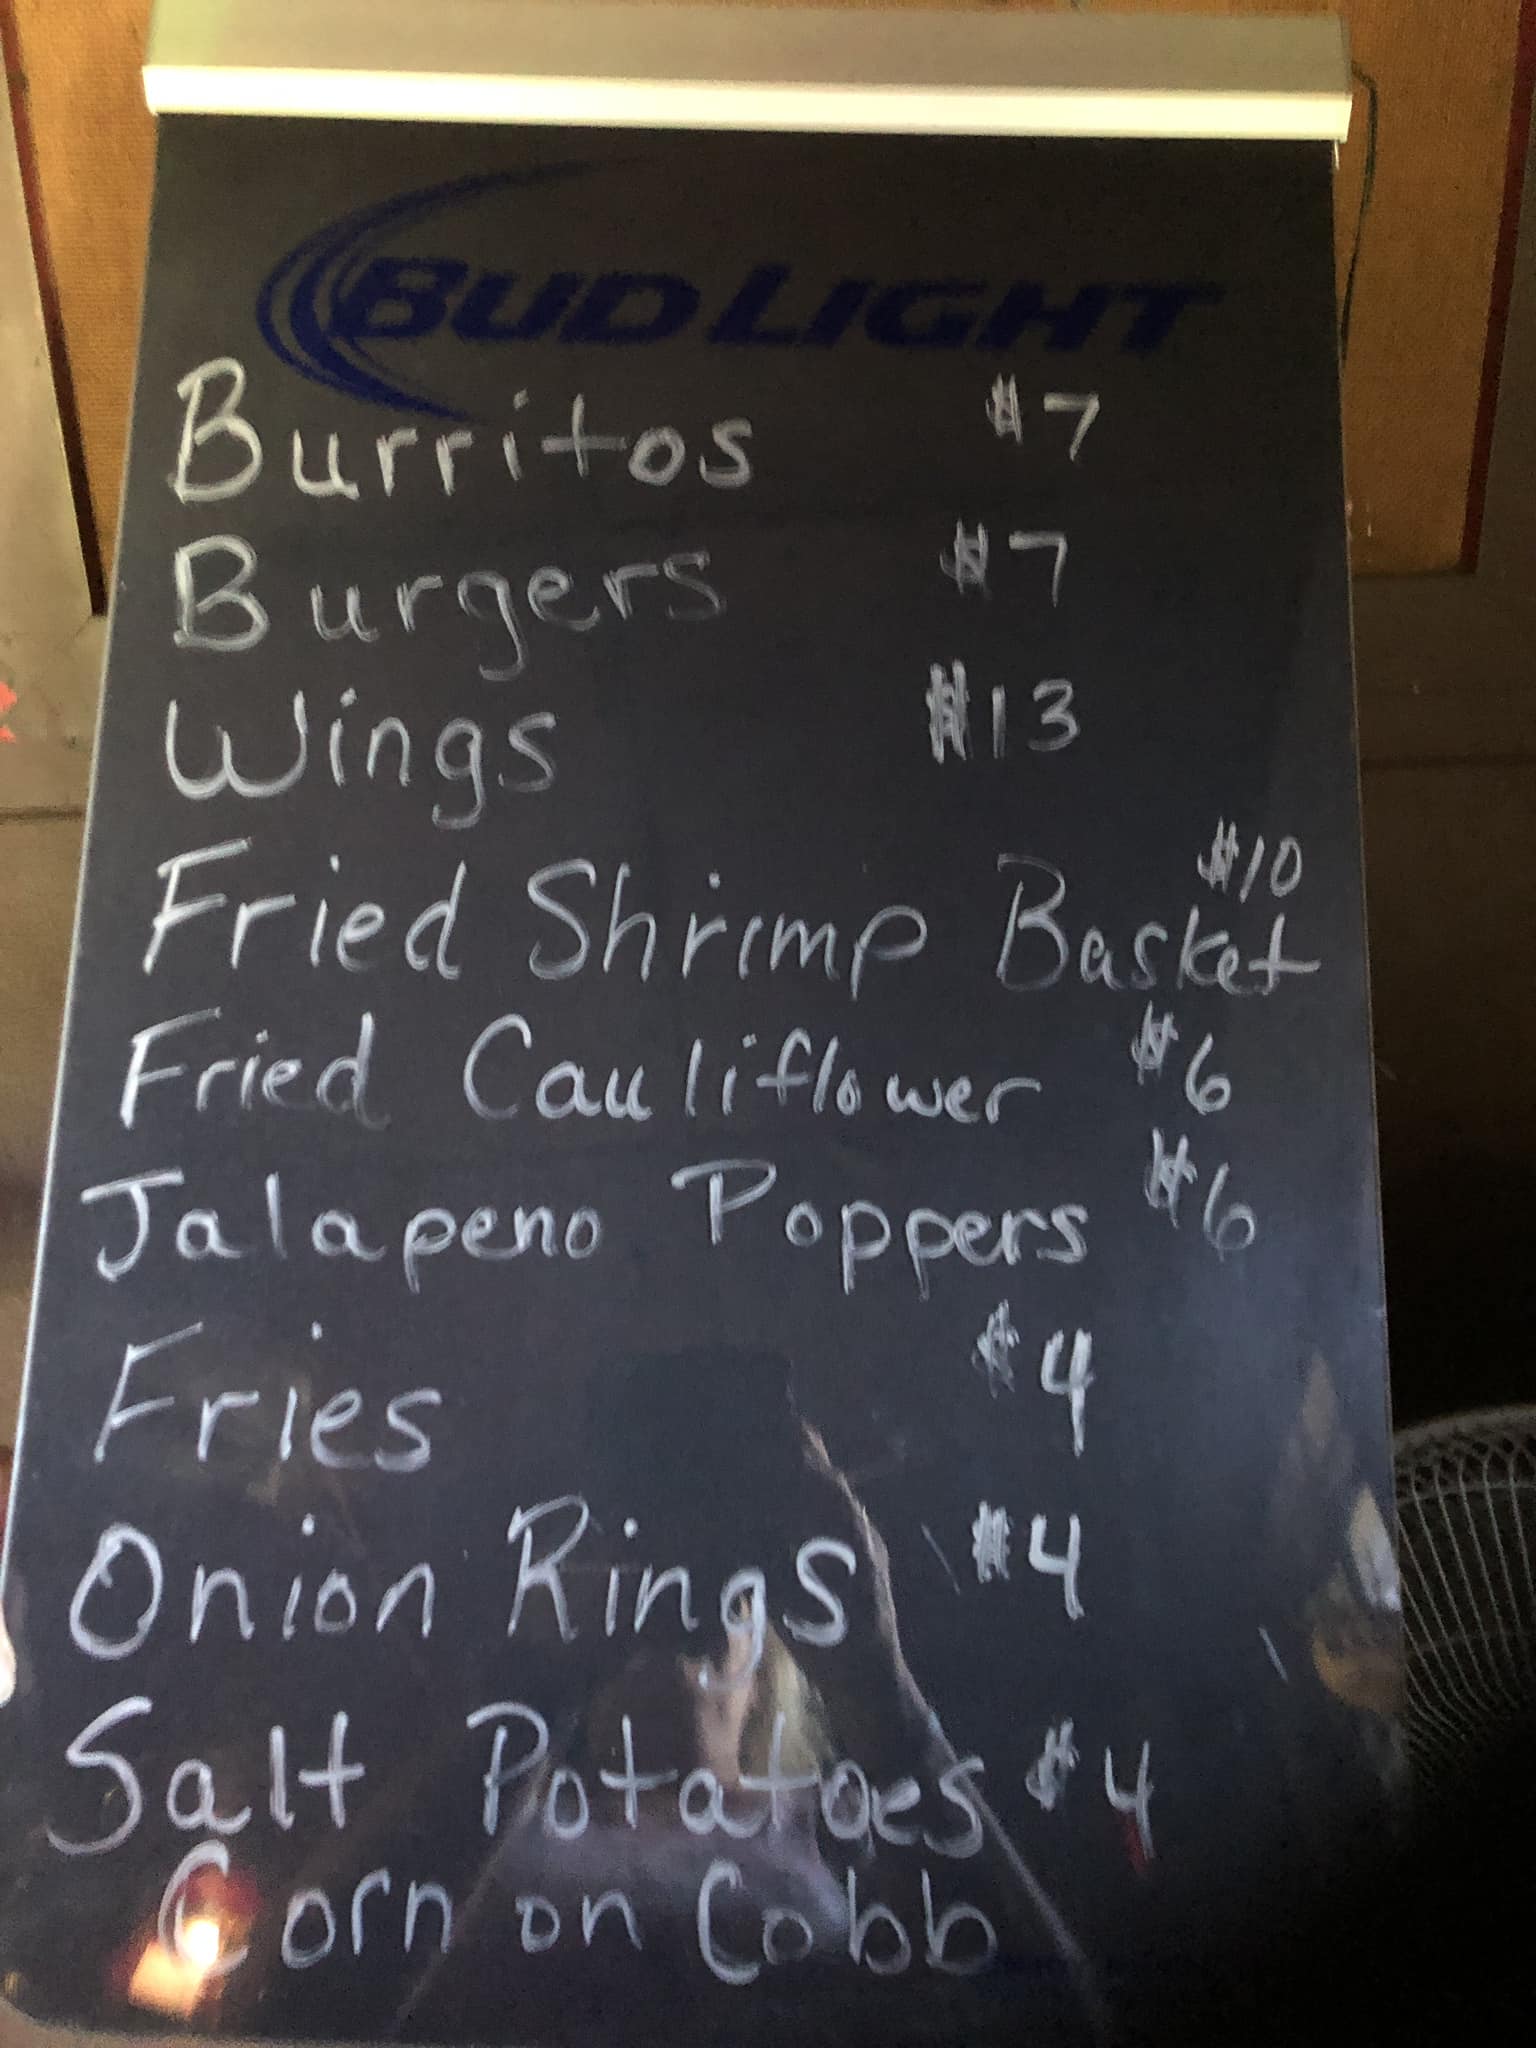 BUD LIGHT
Burritos $7
Burgers $7
Wings $13
Fried Shrimp Basket $10
Fried Cauliflower $6
Jalapeno Poppers $6
Fries $4
Onion Rings $4
Salt Potatoes $4
Corn on Cobb